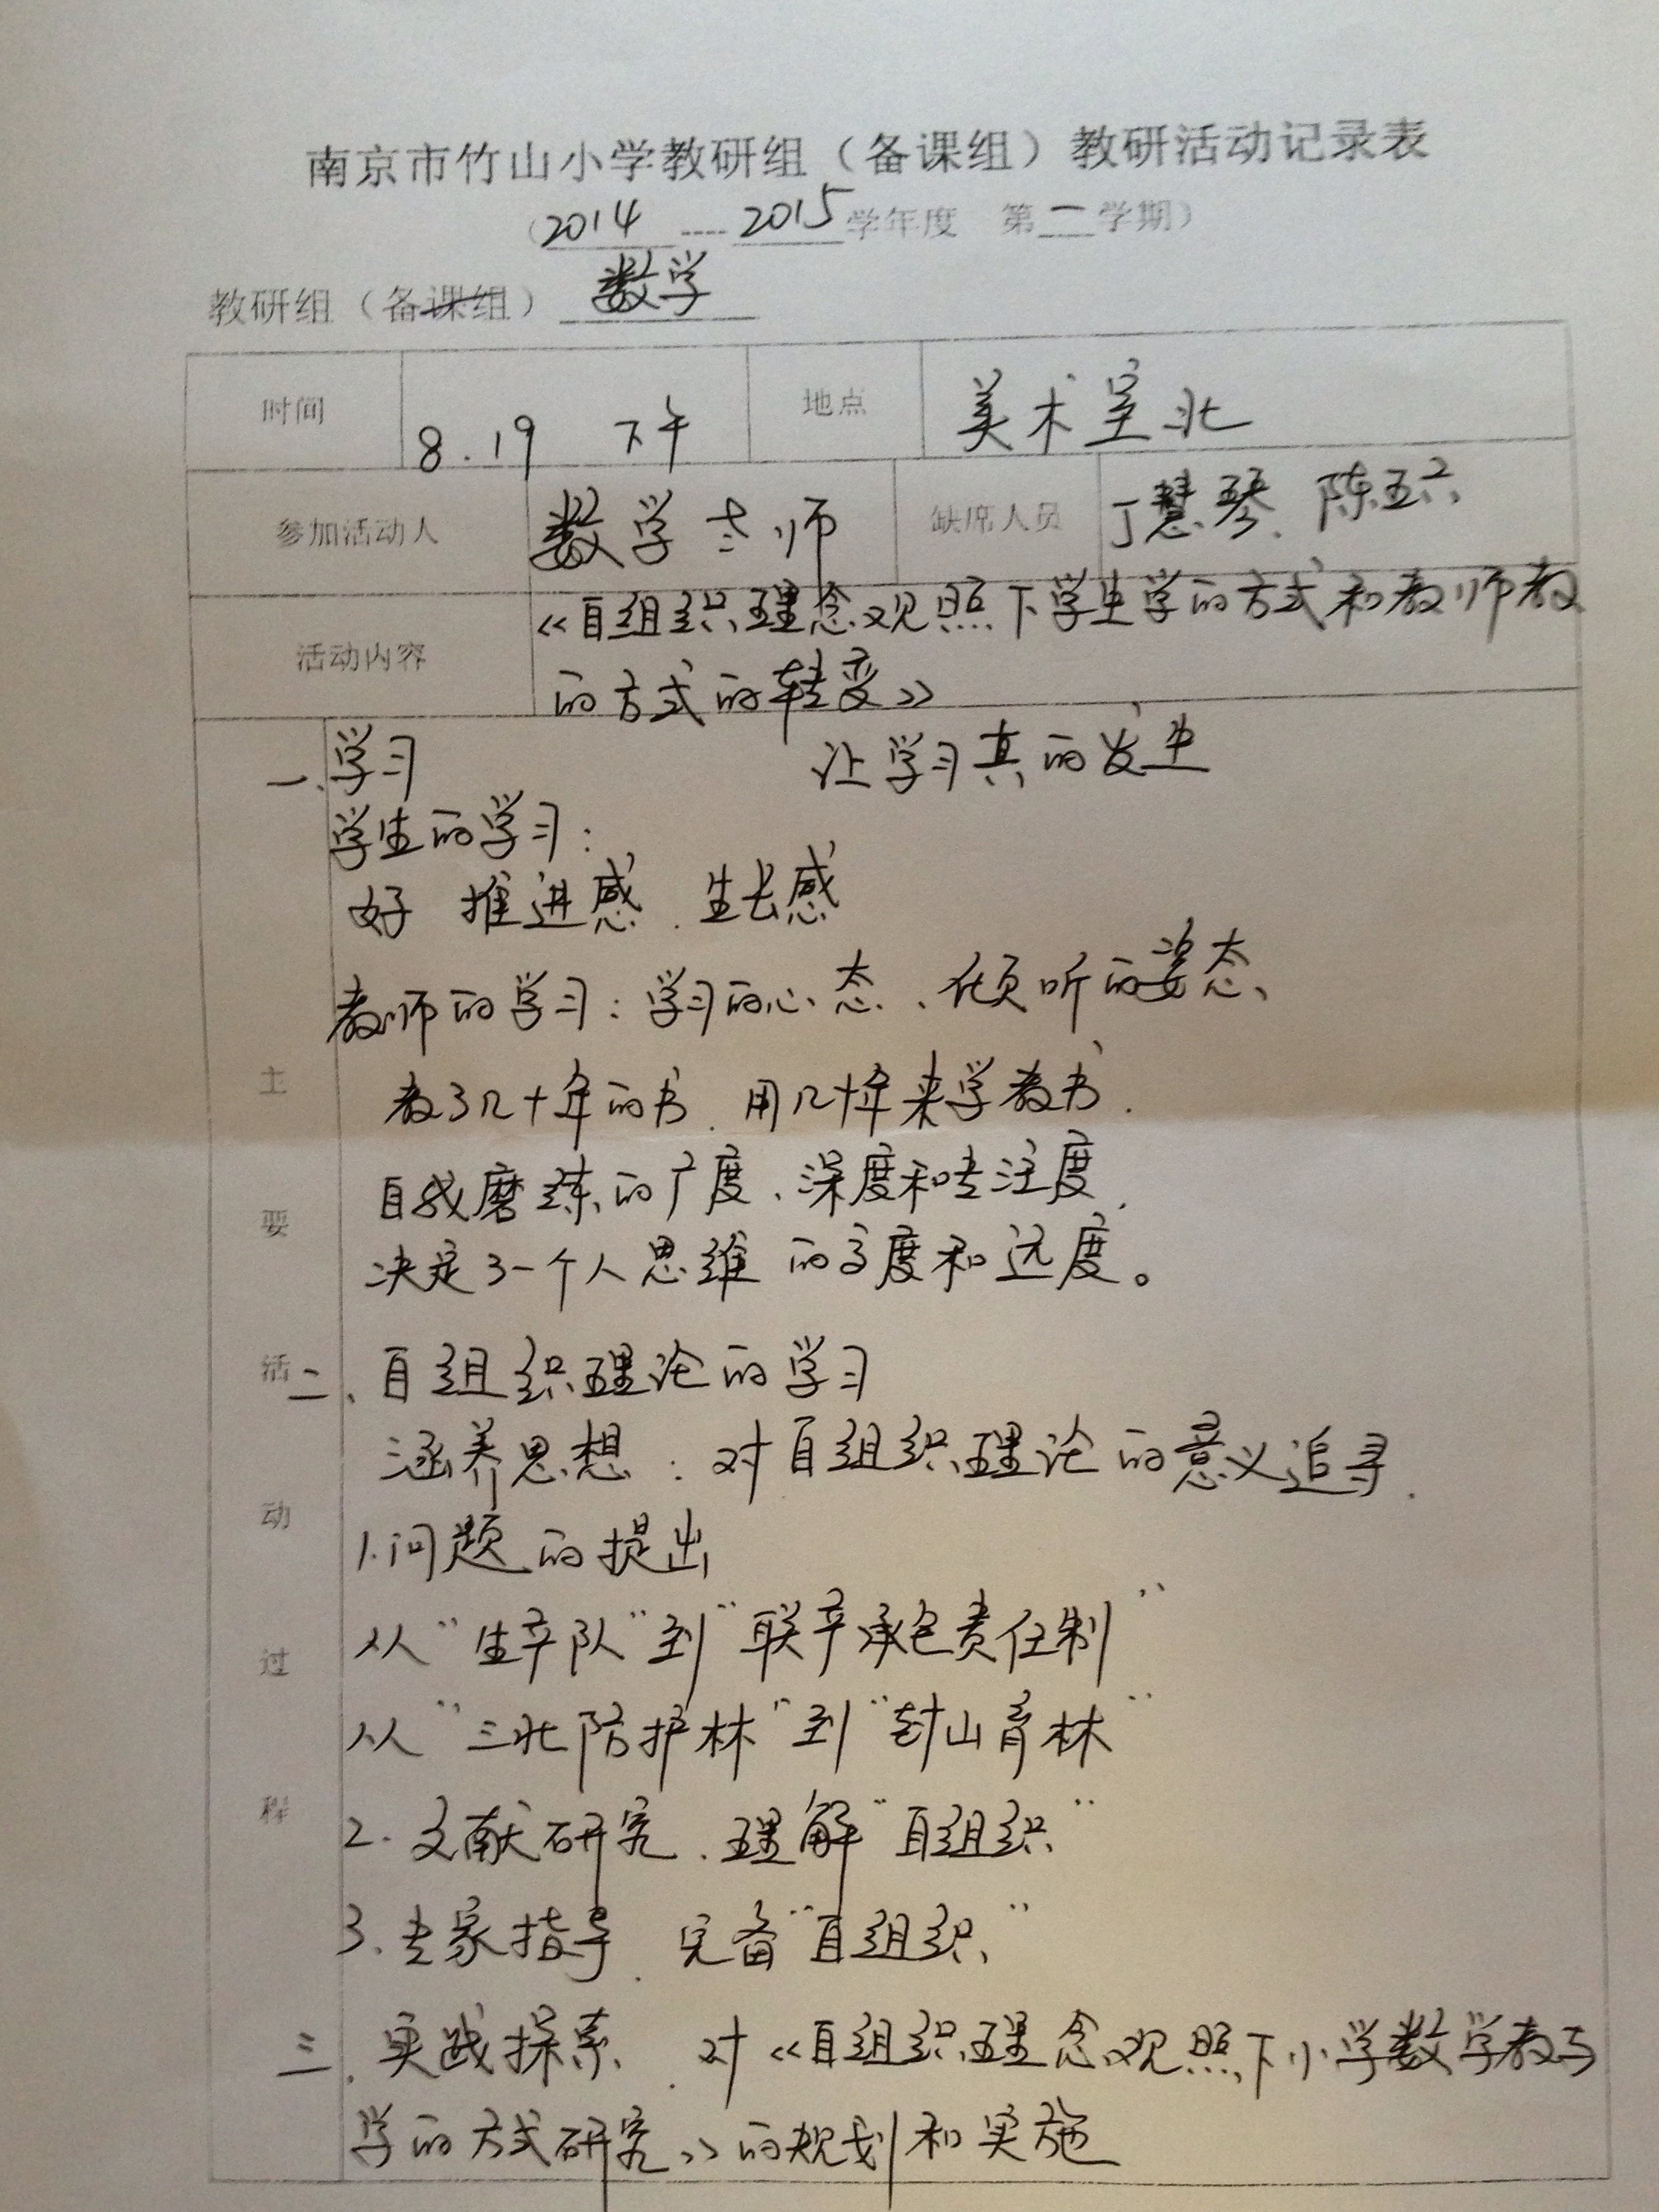 南京市竹山小学教研组（备课组）教研活动记录表
（2014----2015学年度 第一学期）
教研组（备课组） 数学
时间 8.19 下午 地点 美术室北
参加活动人 数学老师 缺席人员 丁慧琴、陈五六
活动内容 《自组织理念观照下学生学的方式和教师教
的方式的转变》
一、学习 让学习真的发生
学生的学习：
好 推进感、生长感
教师的学习：学习的心态、倾听的姿态、
教了几十年的书、用几十年来学教书.
自我磨练的广度、深度和专注度,
决定了一个人思维的高度和远度。
二、自组织理论的学习
涵养思想：对自组织理论的意义追寻.
1.问题的提出
从"生产队"到"联产承包责任制"
从"三北防护林"到"封山育林"
2.文献研究、理解"自组织"
3.专家指导、完备"自组织"
三、实践探索、对《自组织理念观照下小学数学教与
学的方式研究》的规划和实施
主要活动过程